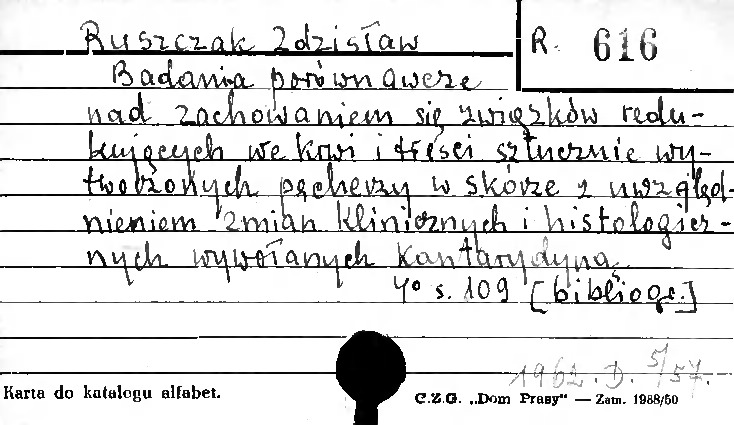 Ruszczak Zdzisław R. 616
Badania porównawcze
nad zachowaniem się związków redu-
kujących we krwi i treści sztucznie wy-
tworzonych pęcherzy w skórze z uwzględ-
nieniem zmian klinicznych i histologicz-
nych wywołanych kantarydyną
4° s. 109 [bibliogr.]
1962. D. 5/57.
Karta do katalogu alfabet.
C.Z.G. „Dom Prasy" — Zam. 1988/50